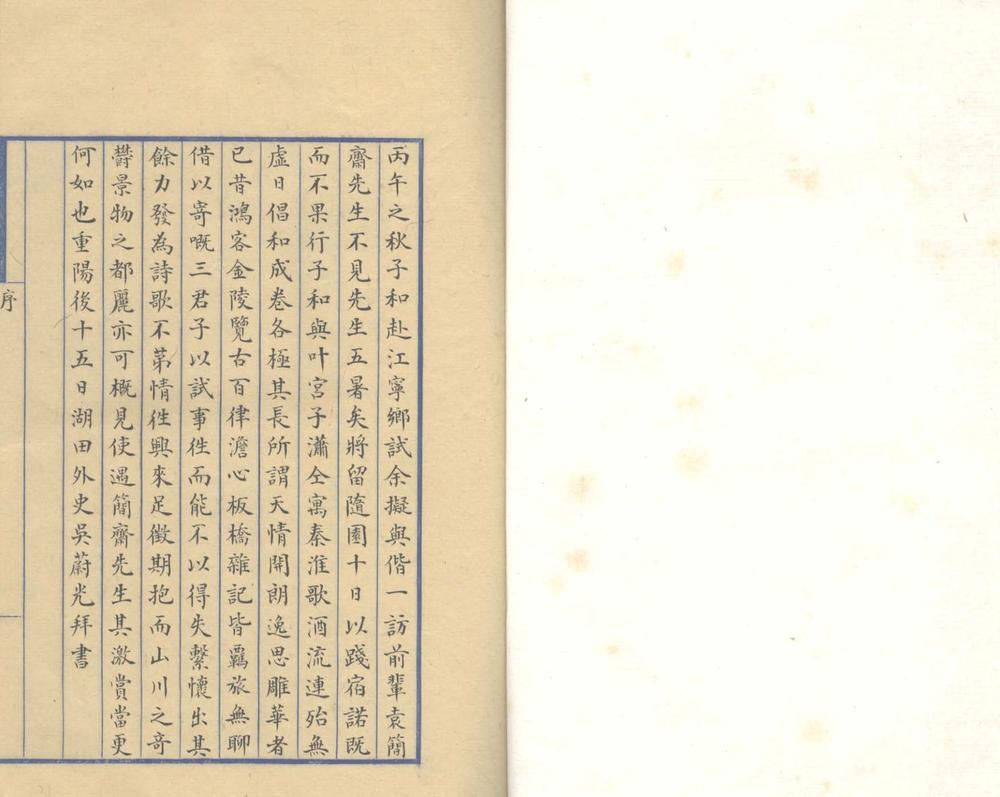 丙午之秋子和赴江寧鄉試余擬與偕一訪前輩袁簡
齋先生不見先生五暑矣將留隨園十日以踐宿諾既
而不果行子和與叶宮子瀟仝寓秦淮歌酒流連殆無
虛日倡和成卷各極其長所謂天情開朗逸思雕華者
已昔鴻客金陵覽古百律澹心板橋雜記皆羈旅無聊
借以寄嘅三君子以試事徃而能不以得失繫懷出其
餘力發為詩歌不苐情徃興來足徵期抱而山川之竒
欎景物之都麗亦可概見使遇簡齋先生其激賞當更
何如也重陽後十五日湖田外史吳蔚光拜書
序